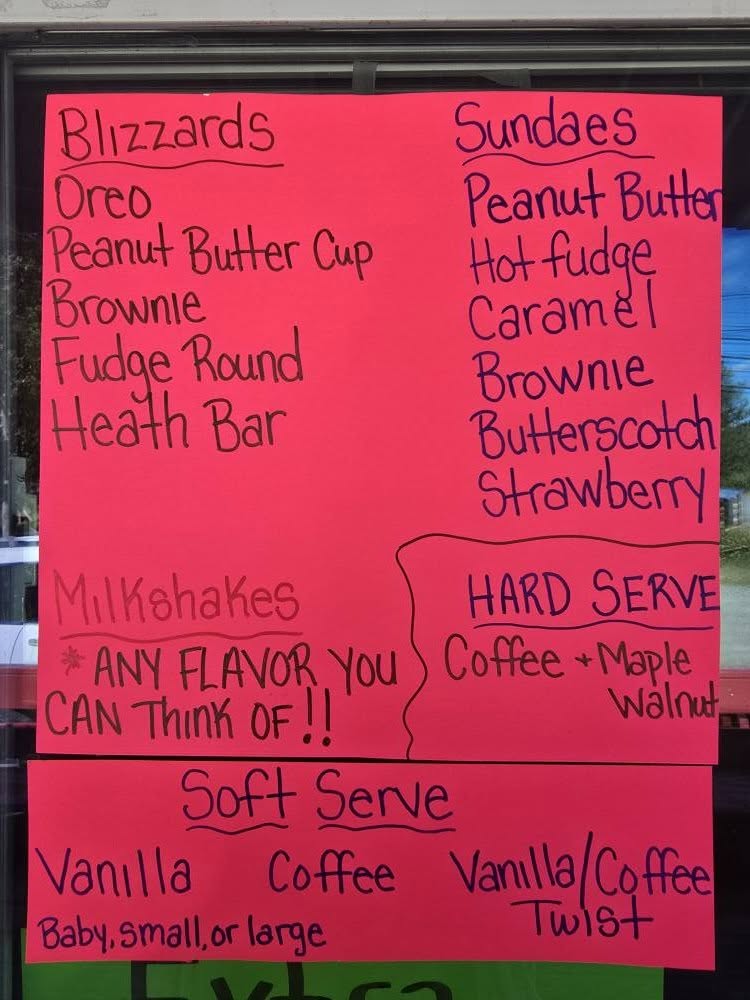 Blizzards
Oreo
Peanut Butter Cup
Brownie
Fudge Round
Heath Bar
Sundaes
Peanut Butter
Hot fudge
Caramel
Brownie
Butterscotch
Strawberry
Milkshakes
* ANY FLAVOR YOU
CAN Think OF!!
HARD SERVE
Coffee + Maple
Walnut
Soft Serve
Vanilla Coffee Vanilla/Coffee
Twist
Baby, small, or large
Extra